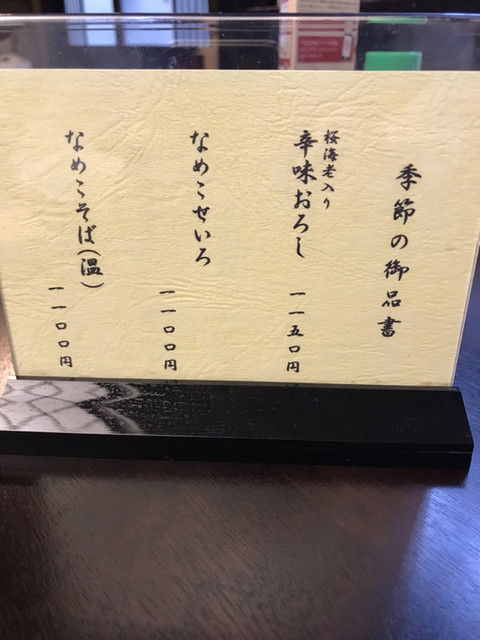 季節の御品書
桜海老入り
辛味おろし
一一五〇円
なめこせいろ
一一〇〇円
なめこそば(温)
一一〇〇円